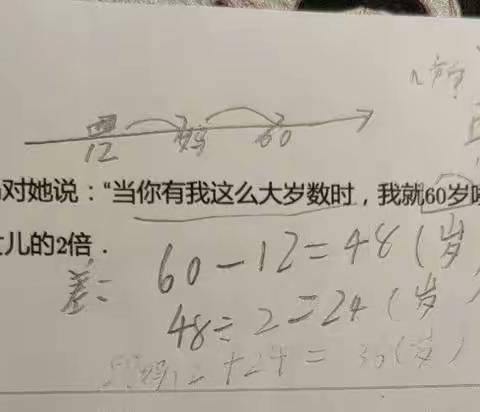 n岁
12 妈 60
对她说：“当你有我这么大岁数时，我就60岁
儿的2倍．
差：60-12=48（岁
48÷2=24（岁）
妈：12+24=36（岁）